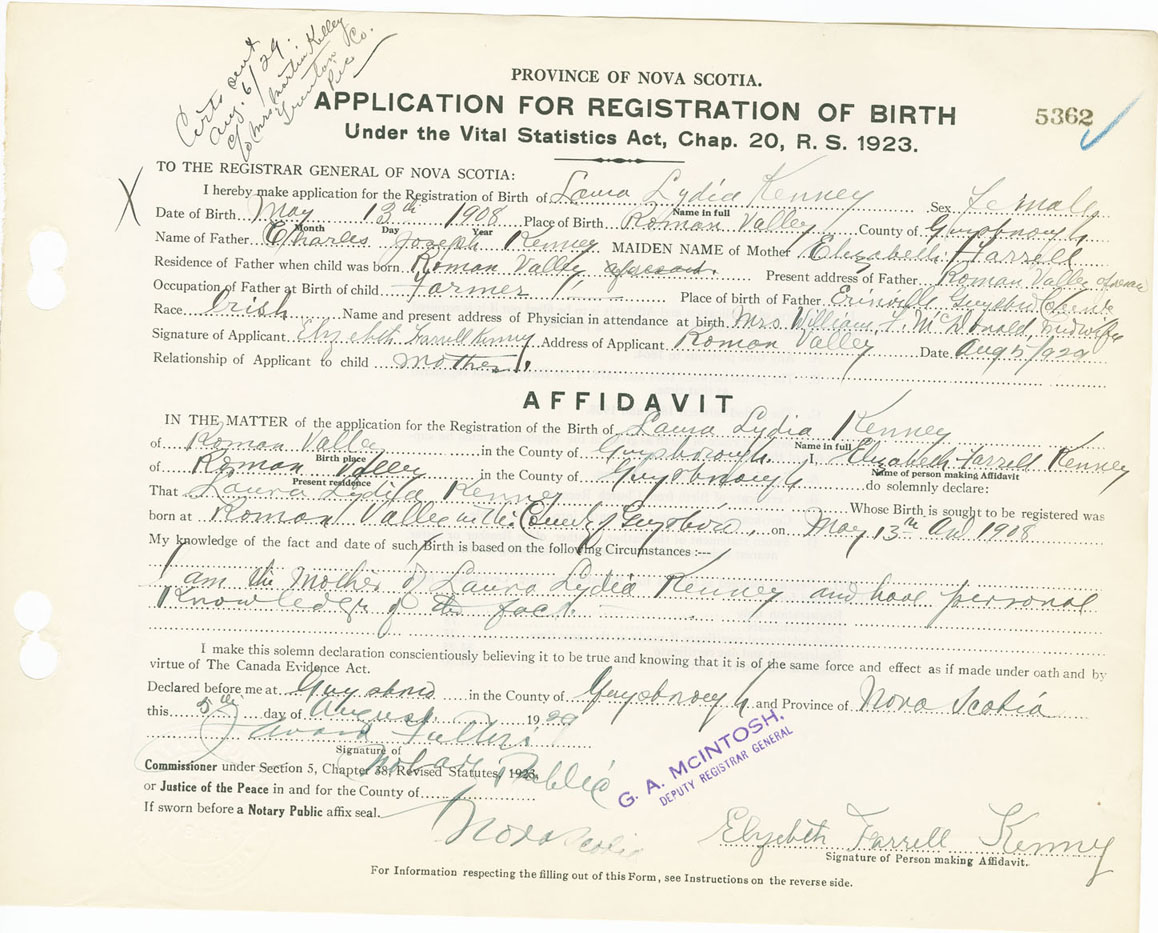 Certs sent
Aug. 6/29.
c/o Mrs Martin Kelley
Trenton
Pic Co.
PROVINCE OF NOVA SCOTIA.
APPLICATION FOR REGISTRATION OF BIRTH
5362
Under the Vital Statistics Act, Chap. 20, R. S. 1923.
TO THE REGISTRAR GENERAL OF NOVA SCOTIA:
X
I hereby make application for the Registration of Birth of Laura Lydia Kenney Sex Female
Name in full
Date of Birth May 13th 1908 Place of Birth Roman Valley County of Guysborough
Month Day Year
Name of Father Charles Joseph Kenney MAIDEN NAME of Mother Elizabeth Farrell
Residence of Father when child was born Roman Valley Present address of Father Roman Valley
Occupation of Father at Birth of child Farmer Place of birth of Father Erinville Guysboro County
Race Irish Name and present address of Physician in attendance at birth Mrs. William F. McDonald, midwife
Signature of Applicant Elizabeth Farrell Kenney Address of Applicant Roman Valley Date Aug 5/1929
Relationship of Applicant to child Mother
AFFIDAVIT
IN THE MATTER of the application for the Registration of the Birth of Laura Lydia Kenney
Name in full
of Roman Valley in the County of Guysborough I, Elizabeth Farrell Kenney
Birth place Name of person making Affidavit
of Roman Valley in the County of Guysborough do solemnly declare:
Present residence
That Laura Lydia Kenney Whose Birth is sought to be registered was
born at Roman Valley in the County of Guysboro, on May 13th A.D. 1908
My knowledge of the fact and date of such Birth is based on the following Circumstances :---
I am the Mother of Laura Lydia Kenney and have personal
Knowledge of the fact.
I make this solemn declaration conscientiously believing it to be true and knowing that it is of the same force and effect as if made under oath and by
virtue of The Canada Evidence Act.
Declared before me at Guysboro in the County of Guysborough and Province of Nova Scotia
this 5th day of August 1929
Fulton
Signature of
Notary Public
Commissioner under Section 5, Chapter 38, Revised Statutes, 1923.
or Justice of the Peace in and for the County of
If sworn before a Notary Public affix seal.
Nova Scotia
G. A. MCINTOSH.
DEPUTY REGISTRAR GENERAL
Elizabeth Farrell Kenney
Signature of Person making Affidavit.
For Information respecting the filling out of this Form, see Instructions on the reverse side.